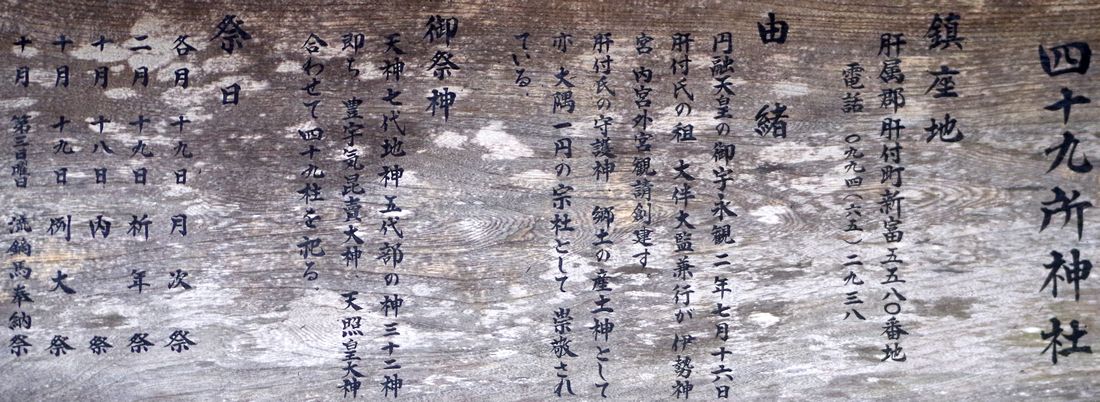 四十九所神社
鎮座地
肝属郡肝付町新富五五八〇番地
電話 〇九九四(六五)二九三八
由緒
円融天皇の御宇永観二年七月十六日
肝付氏の祖 大伴大監兼行が伊勢神
宮 内宮外宮観請創建す
肝付氏の守護神 郷土の産土神として
亦 大隅一円の宗社として 崇敬され
ている。
御祭神
天神七代地神五代部の神三十二神
即ち 豊宇気昆賣大神 天照皇大神
合わせて四十九柱を祀る。
祭日
各月 十九日 月次祭
二月 十九日 祈年祭
十月 十八日 内祭
十月 十九日 例大祭
十月 第三日曜日 流鏑馬奉納祭